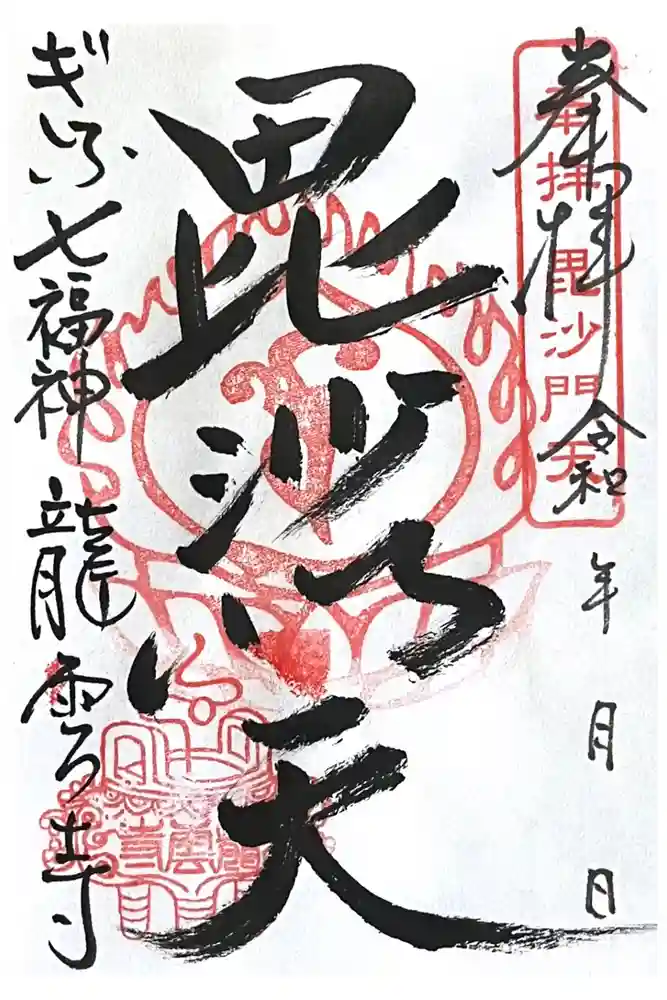 奉拝 令和 年 月 日
奉拝 毘沙門天
毘沙門天
ぎふ七福神 龍雲寺
龍雲寺